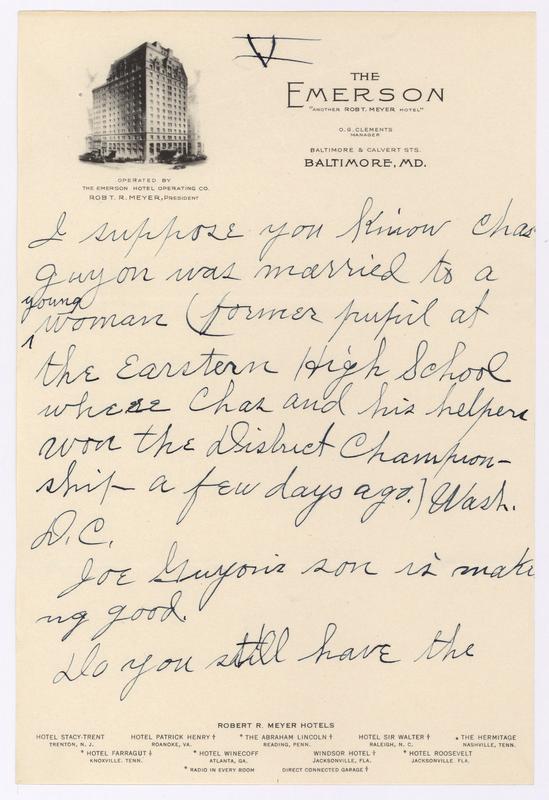 V
THE
EMERSON
"ANOTHER ROBT. MEYER HOTEL"
O.G. CLEMENTS
MANAGER
BALTIMORE & CALVERT STS.
BALTIMORE, MD.
OPERATED BY
THE EMERSON HOTEL OPERATING CO.
ROBT. R. MEYER, PRESIDENT
I suppose you know Chas
guyon was married to a
young
woman (former pupil at
the Earstern High School
where Chas and his helpers
won the District Champion-
ship a few days ago.) Wash.
D.C.
Joe Guyon's son is maki
ng good.
Do you still have the
ROBERT R. MEYER HOTELS
HOTEL STACY-TRENT
TRENTON, N. J.
HOTEL PATRICK HENRY †
ROANOKE, VA.
* THE ABRAHAM LINCOLN †
READING, PENN.
HOTEL SIR WALTER †
RALEIGH, N. C.
* THE HERMITAGE
NASHVILLE, TENN.
* HOTEL FARRAGUT †
KNOXVILLE, TENN.
* HOTEL WINECOFF
ATLANTA, GA.
WINDSOR HOTEL †
JACKSONVILLE, FLA.
* HOTEL ROOSEVELT
JACKSONVILLE, FLA.
* RADIO IN EVERY ROOM
DIRECT CONNECTED GARAGE †